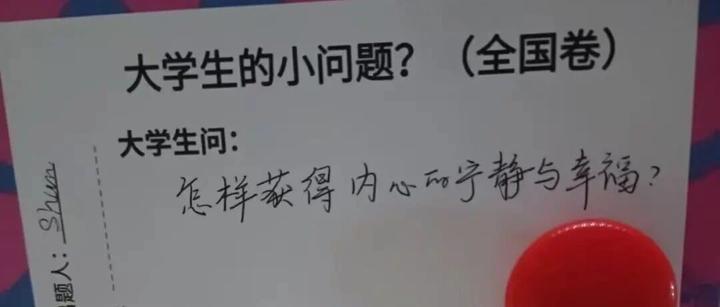 大学生的小问题？（全国卷）
大学生问：
怎样获得内心的宁静与幸福？
题人：Shun